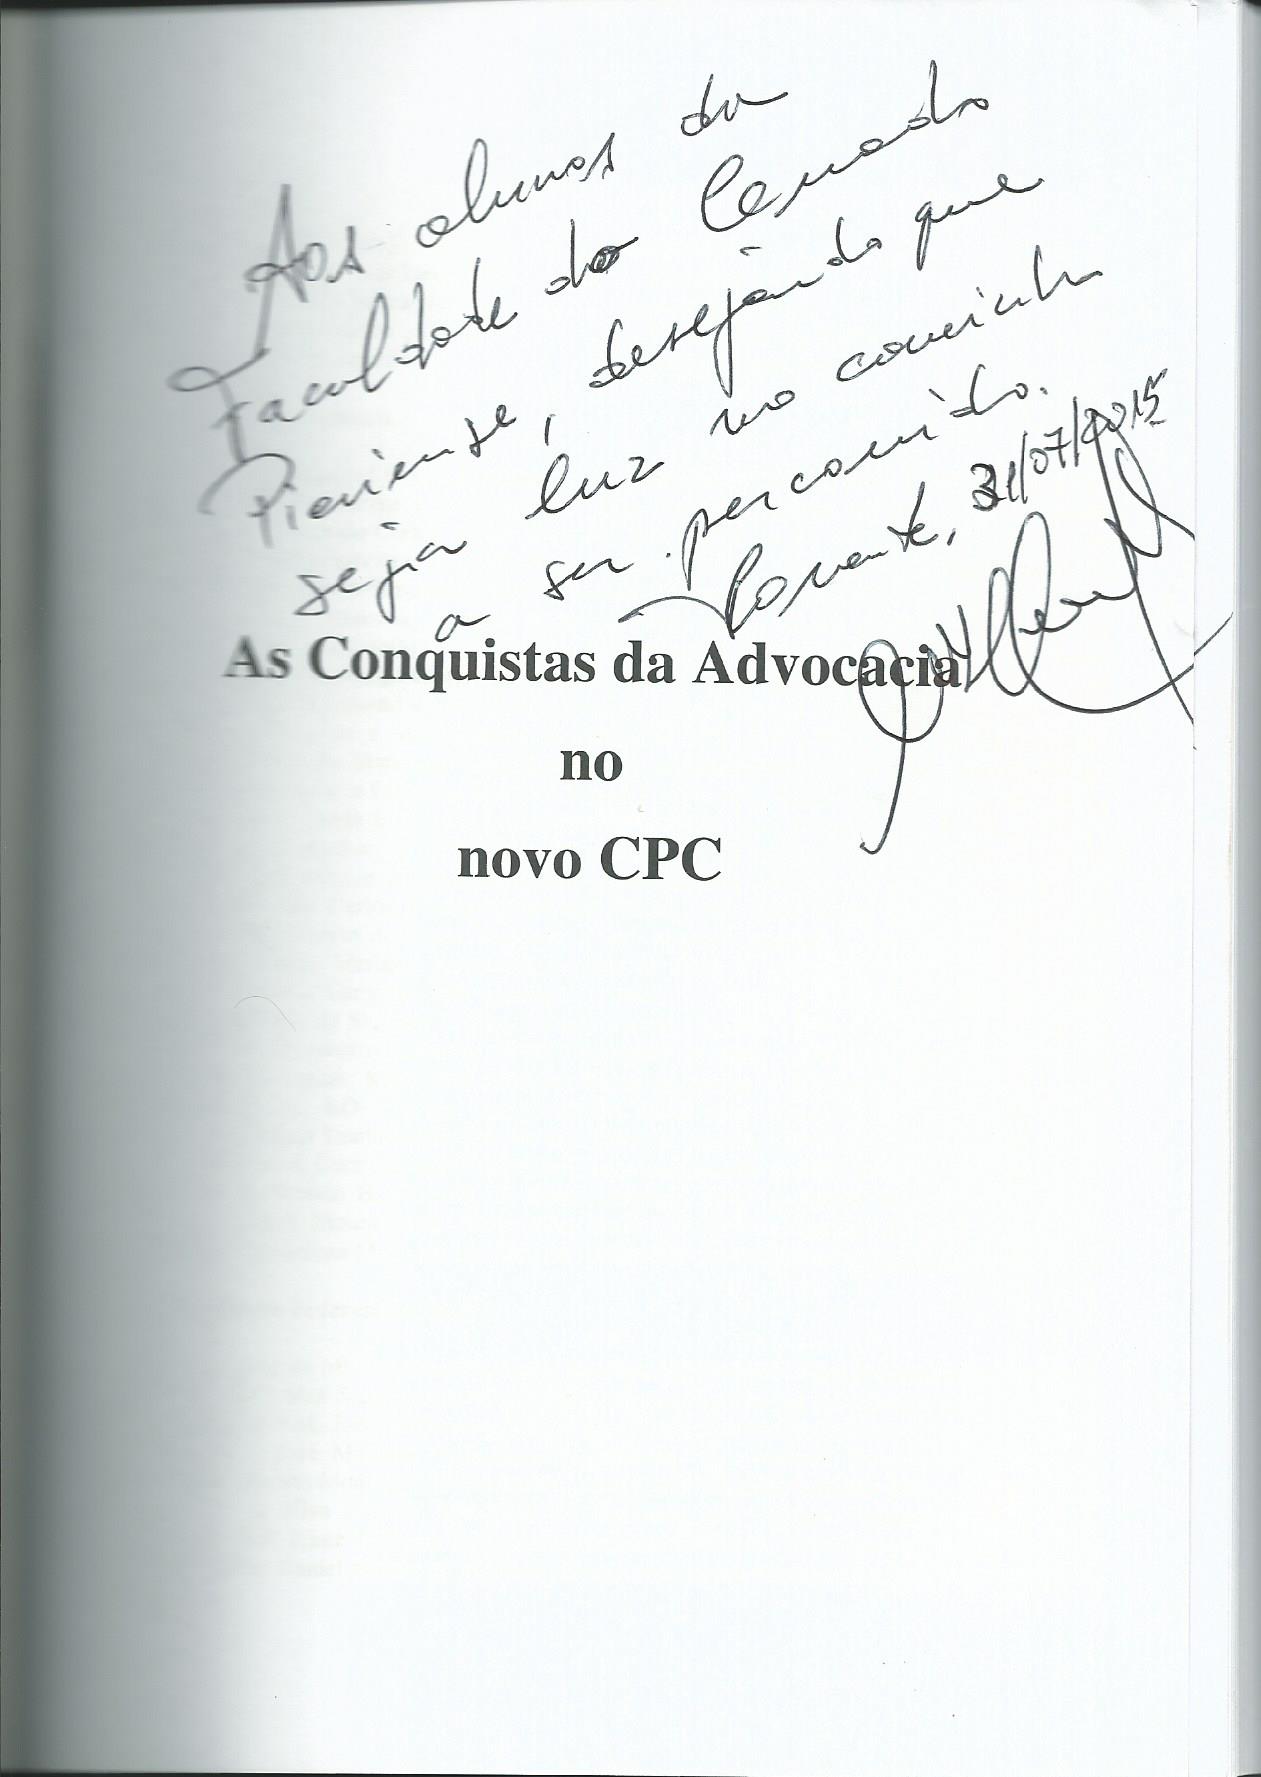 Aos alunos da
Faculdade do Cerrado
Piauiense, desejando que
seja luz no caminho
a ser percorrido.
Corrente, 31/07/2015
As Conquistas da Advocacia
no
novo CPC